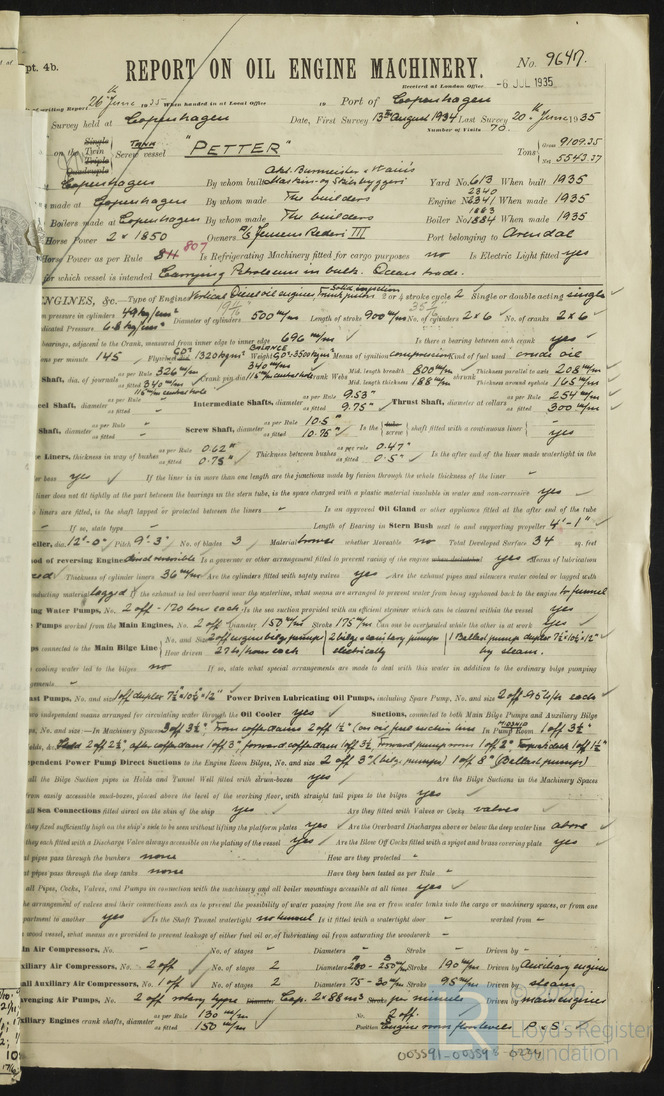 pt. 4b.
REPORT ON OIL ENGINE MACHINERY.
No. 9647.
Received at London Office -6 JUL 1935
writing Report 26th June 1935 When handed in at Local Office 19 Port of Copenhagen
Survey held at Copenhagen Date, First Survey 13th August 1934 Last Survey 20th June 1935
Number of Visits 70.
on the Single Twin Triple Quadruple Screw vessel "PETTER" Tons Gross 9109.35 Net 5543.27
Copenhagen By whom built Akt. Burmeister & Wain's Maskin- og Skibsbyggeri Yard No. 613 When built 1935
made at Copenhagen By whom made The builders Engine No. 2340 2341 When made 1935
Boilers made at Copenhagen By whom made The builders Boiler No. 1883 1884 When made 1935
Horse Power 2 x 1850 Owners A/S Jensens Rederi III Port belonging to Arendal
Horse Power as per Rule 811 807 Is Refrigerating Machinery fitted for cargo purposes no Is Electric Light fitted yes
for which vessel is intended Carrying Petroleum in bulk. Ocean trade.
ENGINES, &c.—Type of Engines Vertical Diesel oil engines Trunk pistons Solid injection 2 or 4 stroke cycle 2 Single or double acting single
pressure in cylinders 49 kg/cm² Diameter of cylinders 500 m/m Length of stroke 900 m/m No. of cylinders 2 x 6 No. of cranks 2 x 6
Indicated Pressure 6.3 kg/cm²
bearings, adjacent to the Crank, measured from inner edge to inner edge 696 m/m Is there a bearing between each crank yes
per minute 145 Flywheel GD² 1320 kgm² BALANCE Weight GD² 3500 kgm² Means of ignition compression Kind of fuel used crude oil
Shaft, dia. of journals as per Rule 326 m/m as fitted 340 m/m Crank pin dia. 340 m/m 115 m/m central hole Crank Webs Mid. length breadth 800 m/m Mid. length thickness 188 m/m shrunk Thickness parallel to axis 208 m/m Thickness around eyehole 165 m/m
115 m/m central hole
Shaft, diameter as per Rule as fitted Intermediate Shafts, diameter as per Rule 9.53" as fitted 9.75" Thrust Shaft, diameter at collars as per Rule 254 m/m as fitted 300 m/m
Shaft, diameter as per Rule as fitted Screw Shaft, diameter as per Rule 10.5" as fitted 10.75" Is the tube screw shaft fitted with a continuous liner yes
Liners, thickness in way of bushes as per Rule 0.62" as fitted 0.75" Thickness between bushes as per rule 0.47" as fitted 0.5" Is the after end of the liner made watertight in the
boss yes If the liner is in more than one length are the junctions made by fusion through the whole thickness of the liner "
liner does not fit tightly at the part between the bearings in the stern tube, is the space charged with a plastic material insoluble in water and non-corrosive yes
liners are fitted, is the shaft lapped or protected between the liners " Is an approved Oil Gland or other appliance fitted at the after end of the tube
" If so, state type " Length of Bearing in Stern Bush next to and supporting propeller 4'-1"
dia. 12'-0" Pitch 9'-3" No. of blades 3 Material bronze whether Moveable no Total Developed Surface 34 sq. feet
of reversing Engines direct reversible Is a governor or other arrangement fitted to prevent racing of the engine when declutched yes Means of lubrication
Thickness of cylinder liners 36 m/m Are the cylinders fitted with safety valves yes Are the exhaust pipes and silencers water cooled or lagged with
conducting material lagged If the exhaust is led overboard near the waterline, what means are arranged to prevent water from being syphoned back to the engine to funnel
Water Pumps, No. 2 off - 170 tons each Is the sea suction provided with an efficient strainer which can be cleared within the vessel yes
Pumps worked from the Main Engines, No. 2 off Diameter 150 m/m Stroke 175 m/m Can one be overhauled while the other is at work yes
connected to the Main Bilge Line No. and Size 2 off engine bilge pumps 2 bilge & sanitary pumps 1 Ballast pump duplex 7½"x10½"x12"
How driven 27 ts/hour each electrically by steam.
cooling water led to the bilges no If so, state what special arrangements are made to deal with this water in addition to the ordinary bilge pumping
Pumps, No. and size 1 off duplex 7½"x10½"x12" Power Driven Lubricating Oil Pumps, including Spare Pump, No. and size 2 off 95 ts/hr each
two independent means arranged for circulating water through the Oil Cooler yes Suctions, connected to both Main Bilge Pumps and Auxiliary Bilge
No. and size—In Machinery Spaces 3 off 3½" From cofferdams 2 off 1½" (on oil fuel suction lines In Pump Room MIDSHIP 1 off 3½"
2 off 2½" after cofferdam 1 off 3" forward cofferdam 1 off 3½ Forward pump room 1 off 2" Forepeak deck 1 off 1½"
Independent Power Pump Direct Suctions to the Engine Room Bilges, No. and size 2 off 3" (bilge pumps) 1 off 8" (Ballast pump)
all the Bilge Suction pipes in Holds and Tunnel Well fitted with strum-boxes yes Are the Bilge Suctions in the Machinery Spaces
from easily accessible mud-boxes, placed above the level of the working floor, with straight tail pipes to the bilges yes
all Sea Connections fitted direct on the skin of the ship yes Are they fitted with Valves or Cocks valves
they fixed sufficiently high on the ship's side to be seen without lifting the platform plates yes Are the Overboard Discharges above or below the deep water line above
they each fitted with a Discharge Valve always accessible on the plating of the vessel yes Are the Blow Off Cocks fitted with a spigot and brass covering plate yes
pipes pass through the bunkers none How are they protected "
pipes pass through the deep tanks none Have they been tested as per Rule "
all Pipes, Cocks, Valves, and Pumps in connection with the machinery and all boiler mountings accessible at all times yes
the arrangement of valves and their connections such as to prevent the possibility of water passing from the sea or from water tanks into the cargo or machinery spaces, or from one
compartment to another yes Is the Shaft Tunnel watertight no tunnel Is it fitted with a watertight door " worked from "
wood vessel, what means are provided to prevent leakage of either fuel oil or lubricating oil from saturating the woodwork "
Main Air Compressors, No. " No. of stages " Diameters " Stroke " Driven by "
Auxiliary Air Compressors, No. 2 off No. of stages 2 Diameters 280 - 250 m/m Stroke 190 m/m Driven by Auxiliary engines
Small Auxiliary Air Compressors, No. 1 off No. of stages 2 Diameters 75 - 30 m/m Stroke 95 m/m Driven by steam
Scavenging Air Pumps, No. 2 off rotary type Diameter Cap. 2 x 88 m3 Stroke per minute Driven by main engines
Auxiliary Engines crank shafts, diameter as per Rule 130 m/m as fitted 150 m/m No. 2 off. Position Engine room floor level P & S
© 2020
Lloyd's Register
Foundation
003591-003598-0234